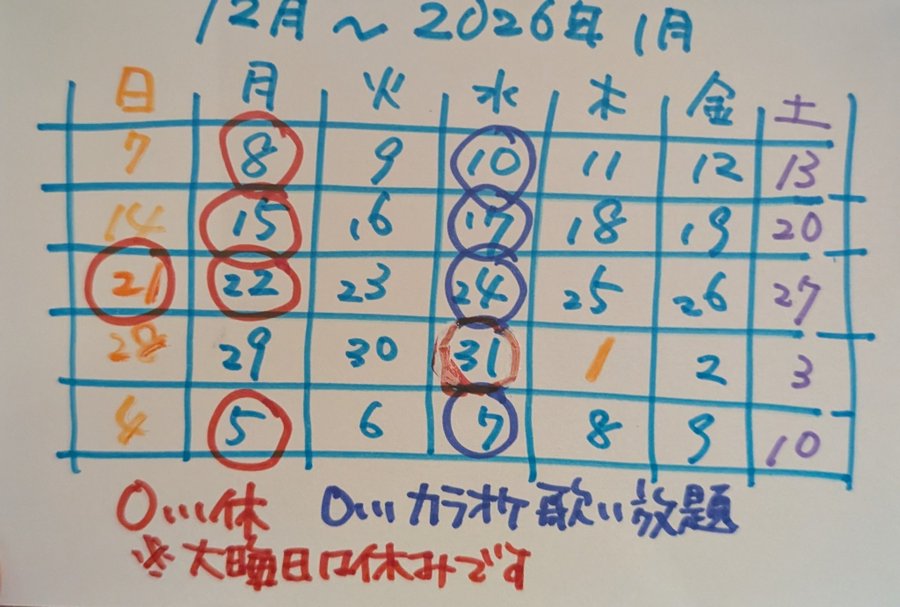 12月～2026年1月
日 月 火 水 木 金 土
7 8 9 10 11 12 13
14 15 16 17 18 19 20
21 22 23 24 25 26 27
28 29 30 31 1 2 3
4 5 6 7 8 9 10
〇…休 〇…カラオケ歌い放題
※大晦日は休みです